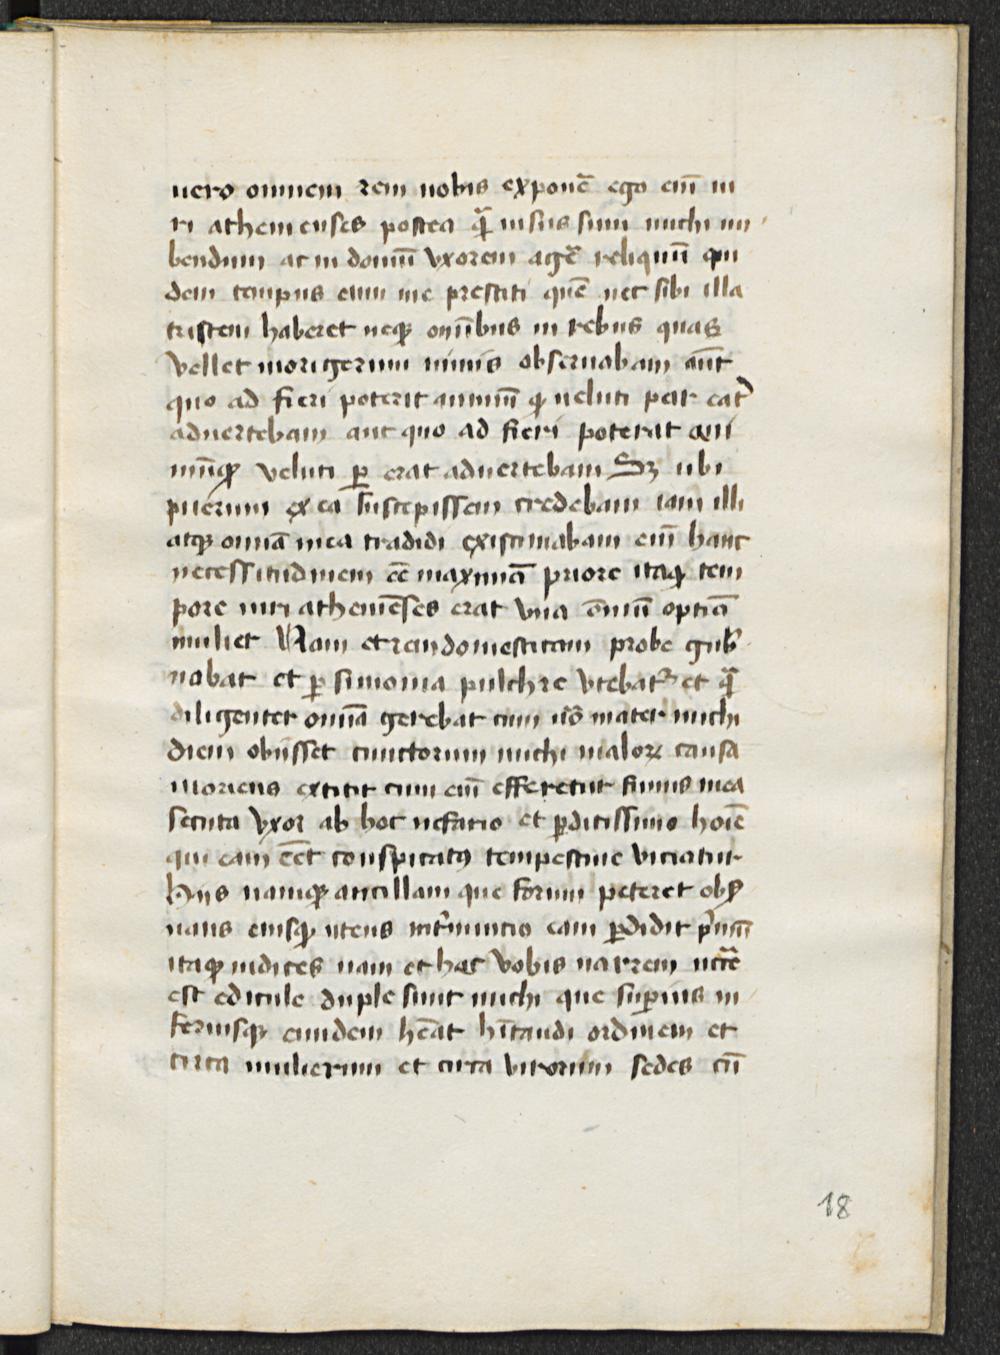 uero omnem rem nobis exponē ego eni᷑ ui
ri atheni enses postea qᷓ uisus sum michi nu
bendum ac in domū vxorem agē᷑ reliquū qui
dem tempus eum me prestiti quē nec sibi illa
tristem haberet neqꝫ om̄ibus in rebus quas
vellet morigerum nimis obseruabam aūt
quo ad fieri poterit animū qꝫ ueluti par erat
aduertebam aut quo ad fieri poterat ani
mūqꝫ veluti ꝑ erat aduertebam Sꝫ ubi
puerum ex ea suscepissem credebam iam illi
atqꝫ omīa mea tradidi existimabam eni᷑ hanc
necessitudinem eē maximā priore itaqꝫ tem
pore uiri atheniēses erat vna ōmiū optīa
mulier Nam et rem domesticam probe gub᷑
nabat et ꝑsimonia pulchre vtebat᷑ et qᷓ
diligenter omīa gerebat cum u᷑o mater michi
diem obiisset cunctorum michi maloꝝ causa
moriens extitit cum eni᷑ efferetur funus mea
secuta vxor ab hoc nefario et ꝑditissimo hoīe
qui eam eēt conspicatꝰ tempestiue viciatur
Hijs namqꝫ ancillam que forum peteret obẜ
uans eiusqꝫ utens int᷑nuntio eam ꝑdidit p᷑mū
itaqꝫ iudices nam et hac vobis narrem nccē᷑
est edicule duple sunt michi que suꝑius in
feriusqꝫ eundem hēāt hītandi ordinem et
circa mulierum et circa virorum sedes cū
18